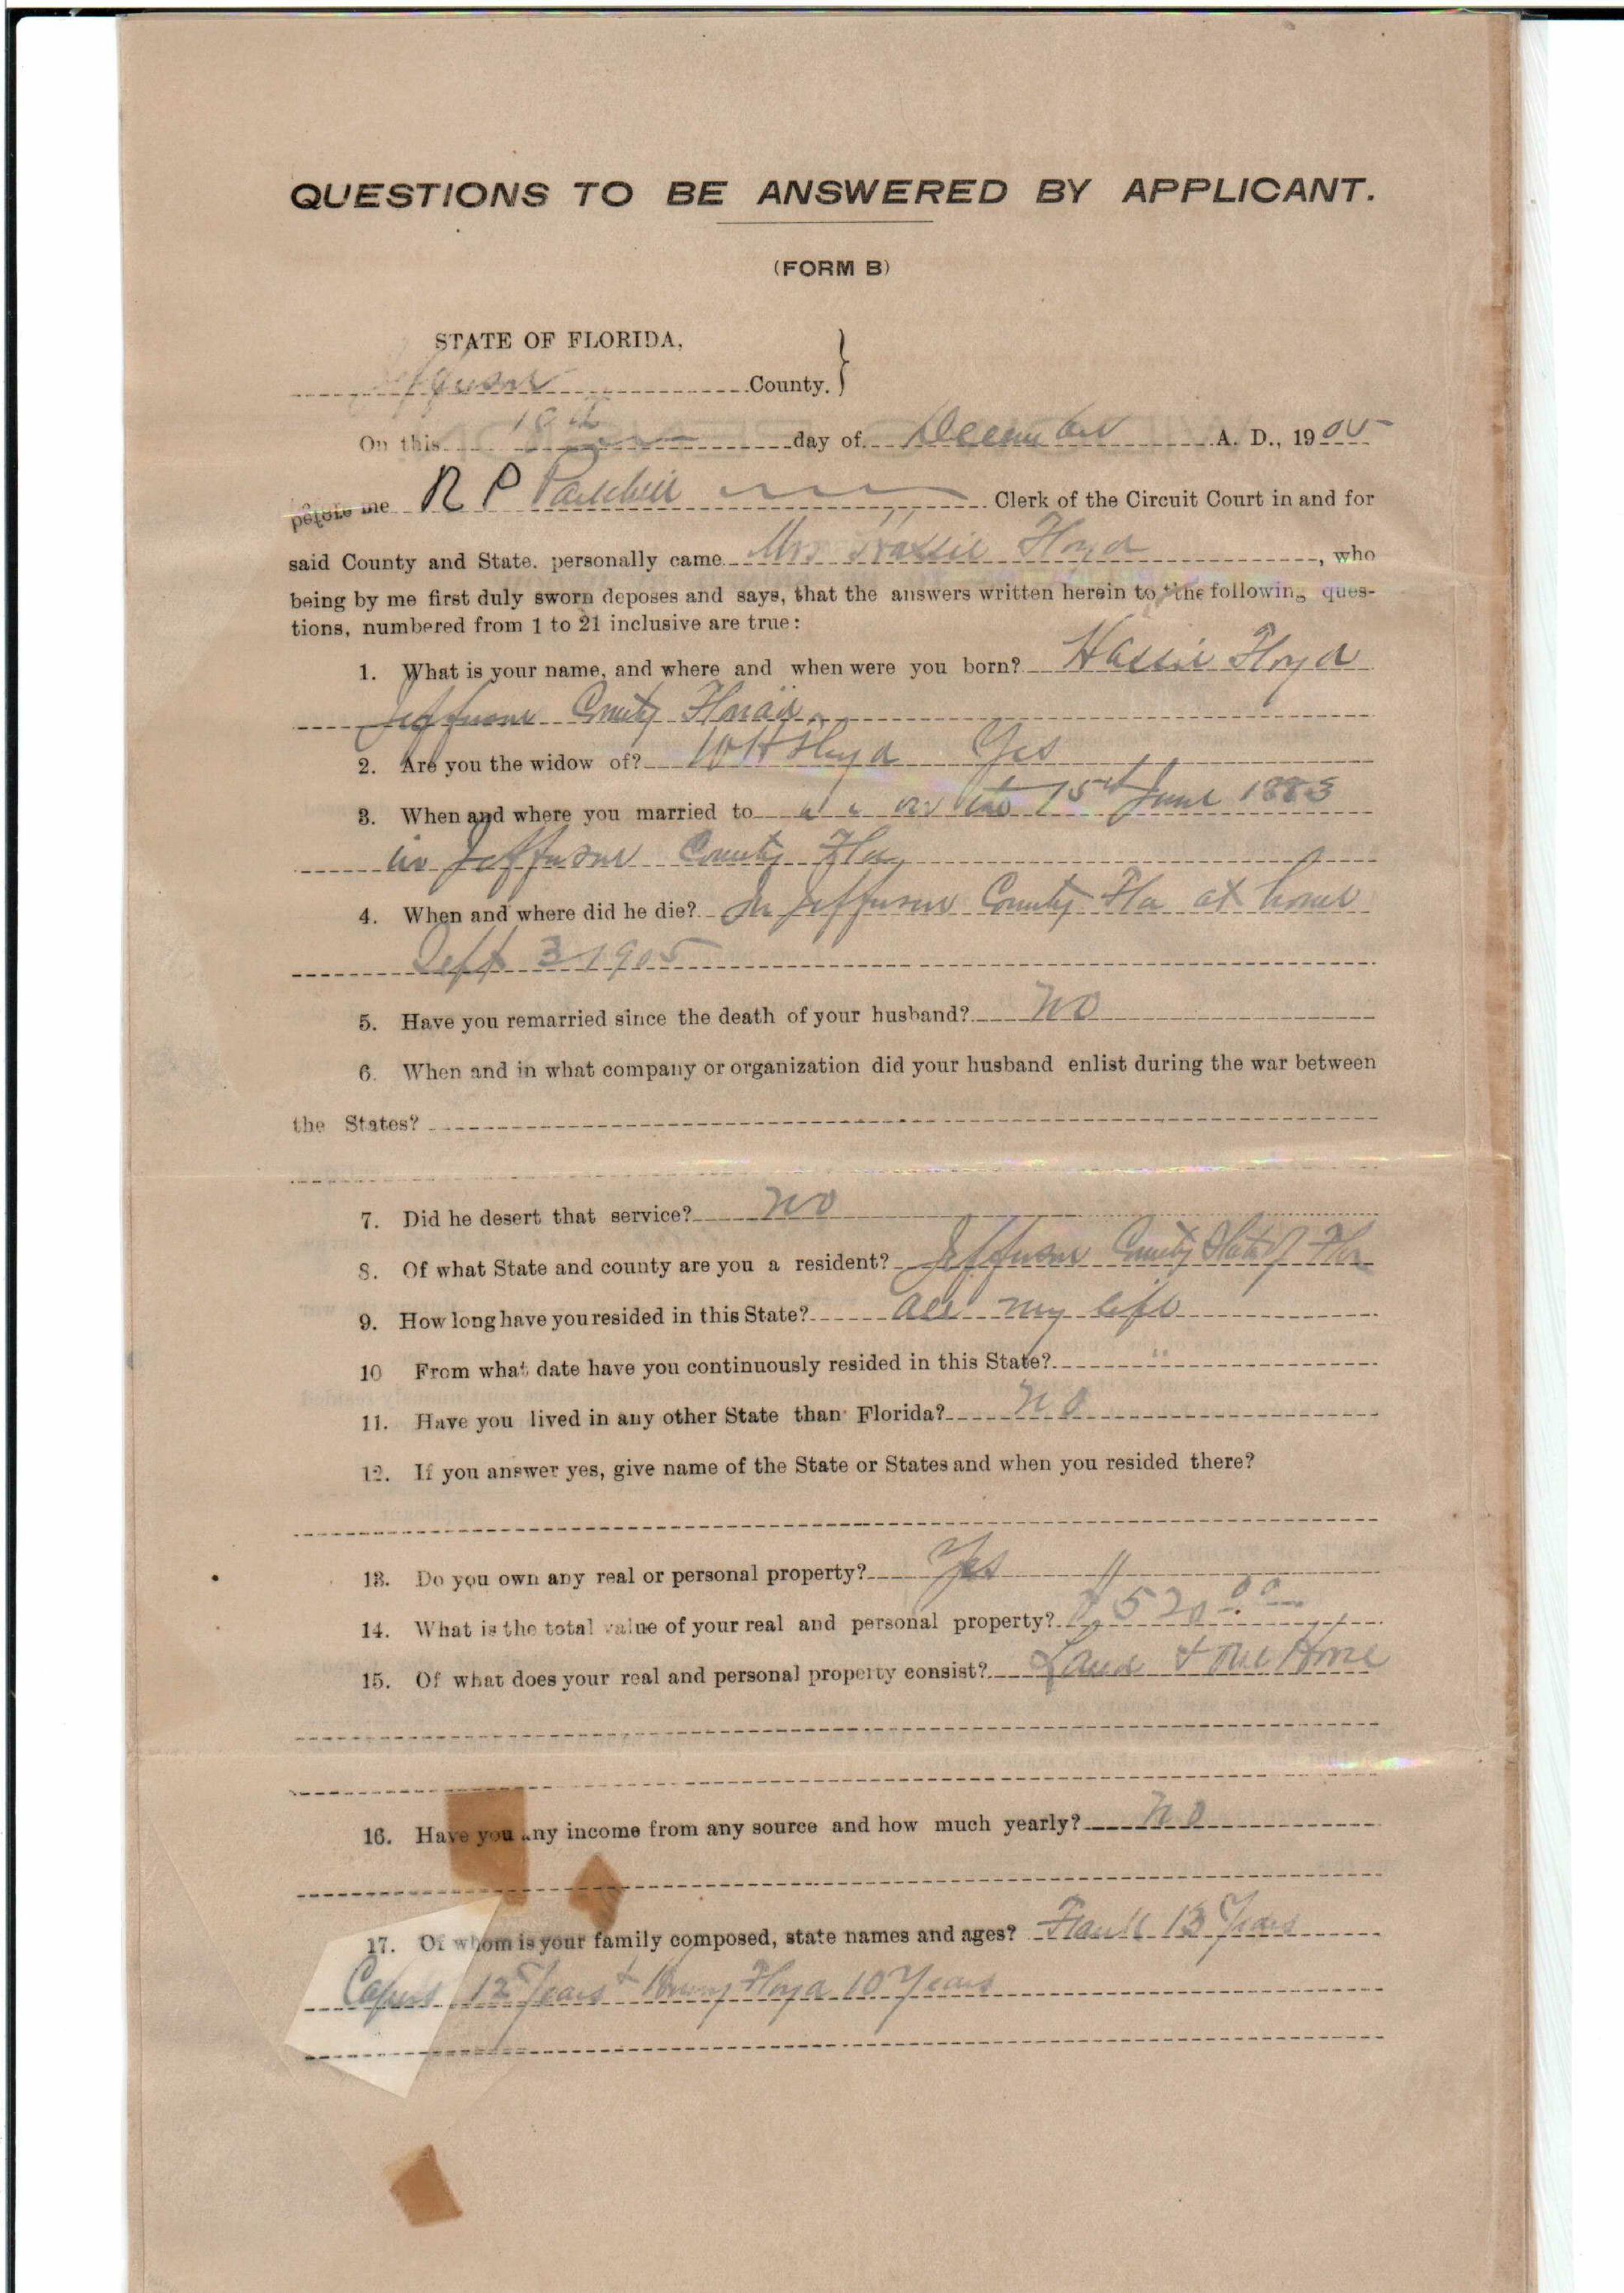 QUESTIONS TO BE ANSWERED BY APPLICANT.
(FORM B)
STATE OF FLORIDA,
Jefferson County. }
On this day of December A. D., 1905
before me R P Clerk of the Circuit Court in and for
said County and State. personally came Mrs Hassie Floyd, who
being by me first duly sworn deposes and says, that the answers written herein to the following ques-
tions, numbered from 1 to 21 inclusive are true:
1. What is your name, and where and when were you born? Hassie Floyd
Jefferson County Florida
2. Are you the widow of? W H Floyd Yes
3. When and where you married to on the 15th June 1883
in Jefferson County Fla
4. When and where did he die? In Jefferson County Fla at home
Sept 3 1905
5. Have you remarried since the death of your husband? No
6. When and in what company or organization did your husband enlist during the war between
the States?
7. Did he desert that service? No
8. Of what State and county are you a resident? Jefferson County State of Fla
9. How long have you resided in this State? all my life
10 From what date have you continuously resided in this State? "
11. Have you lived in any other State than Florida? No
12. If you answer yes, give name of the State or States and when you resided there?
13. Do you own any real or personal property? Yes
14. What is the total value of your real and personal property? $520.00
15. Of what does your real and personal property consist? Land & one Horse
16. Have you any income from any source and how much yearly? No
17. Of whom is your family composed, state names and ages? Frank 13 Years
Capers 12 Years & Henry Floyd 10 Years